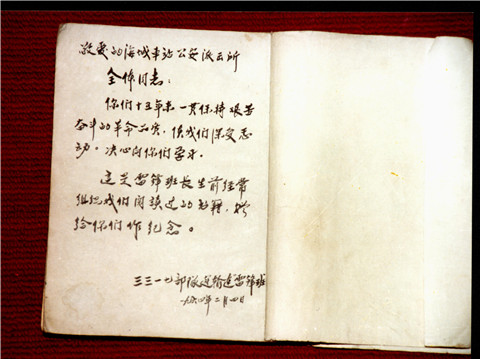 敬爱的海城车站公安派出所
全体同志：
你们十三年来一贯保持艰苦
奋斗的革命品质，使我们深受感
动。决心向你们学习。
这是雷锋班长生前经常
组织我们阅读过的书籍，赠
给你们作纪念。
三三一七部队运输连雷锋班
一九六四年二月四日